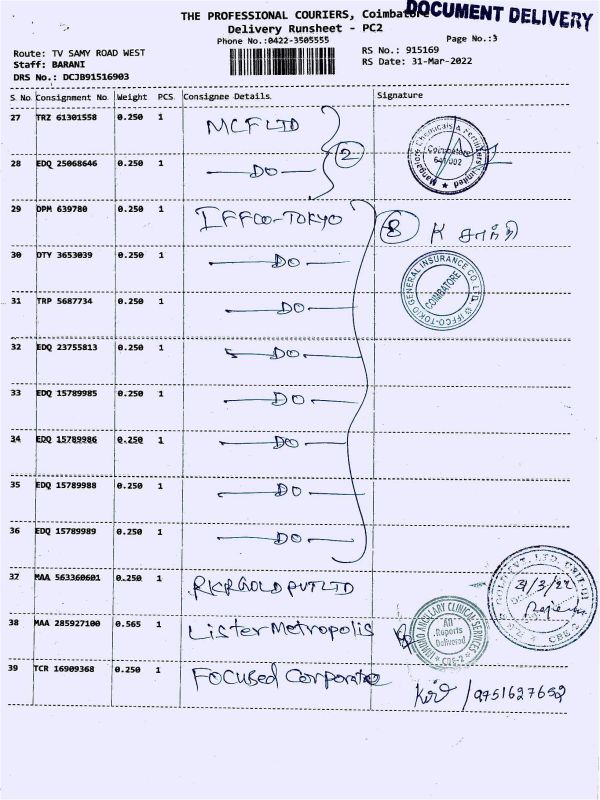 THE PROFESSIONAL COURIERS, Coimbatore
DOCUMENT DELIVERY
Delivery Runsheet - PC2
Phone No.:0422-3505555
Page No.:3
Route: TV SAMY ROAD WEST
RS No.: 915169
Staff: BARANI
RS Date: 31-Mar-2022
DRS No.: DCJB91516903
S No Consignment No. Weight PCS Consignee Details. Signature
27 TRZ 61301558 0.250 1 MCF LTD
28 EDQ 25068646 0.250 1 DO
2
Mangalore Chemicals & Fertilizers Limited
Coimbatore
641 002
29 DPM 639780 0.250 1 IFFCO-TOKYO
8 K சாந்தி
30 DTY 3653039 0.250 1 DO
IFFCO-TOKIO GENERAL INSURANCE CO. LTD.
COIMBATORE
31 TRP 5687734 0.250 1 DO
32 EDQ 23755813 0.250 1 DO
33 EDQ 15789985 0.250 1 DO
34 EDQ 15789986 0.250 1 DO
35 EDQ 15789988 0.250 1 DO
36 EDQ 15789989 0.250 1 DO
37 MAA 563360601 0.250 1 RKRGOLD PVT LTD
31/3/22
CBE-2
38 MAA 285927100 0.565 1 Lister Metropolis
ANCILLARY CLINICAL SERVICES
All
Reports
Delivered
CBE-2
39 TCR 16909368 0.250 1 Focused Corporate
/9751627652